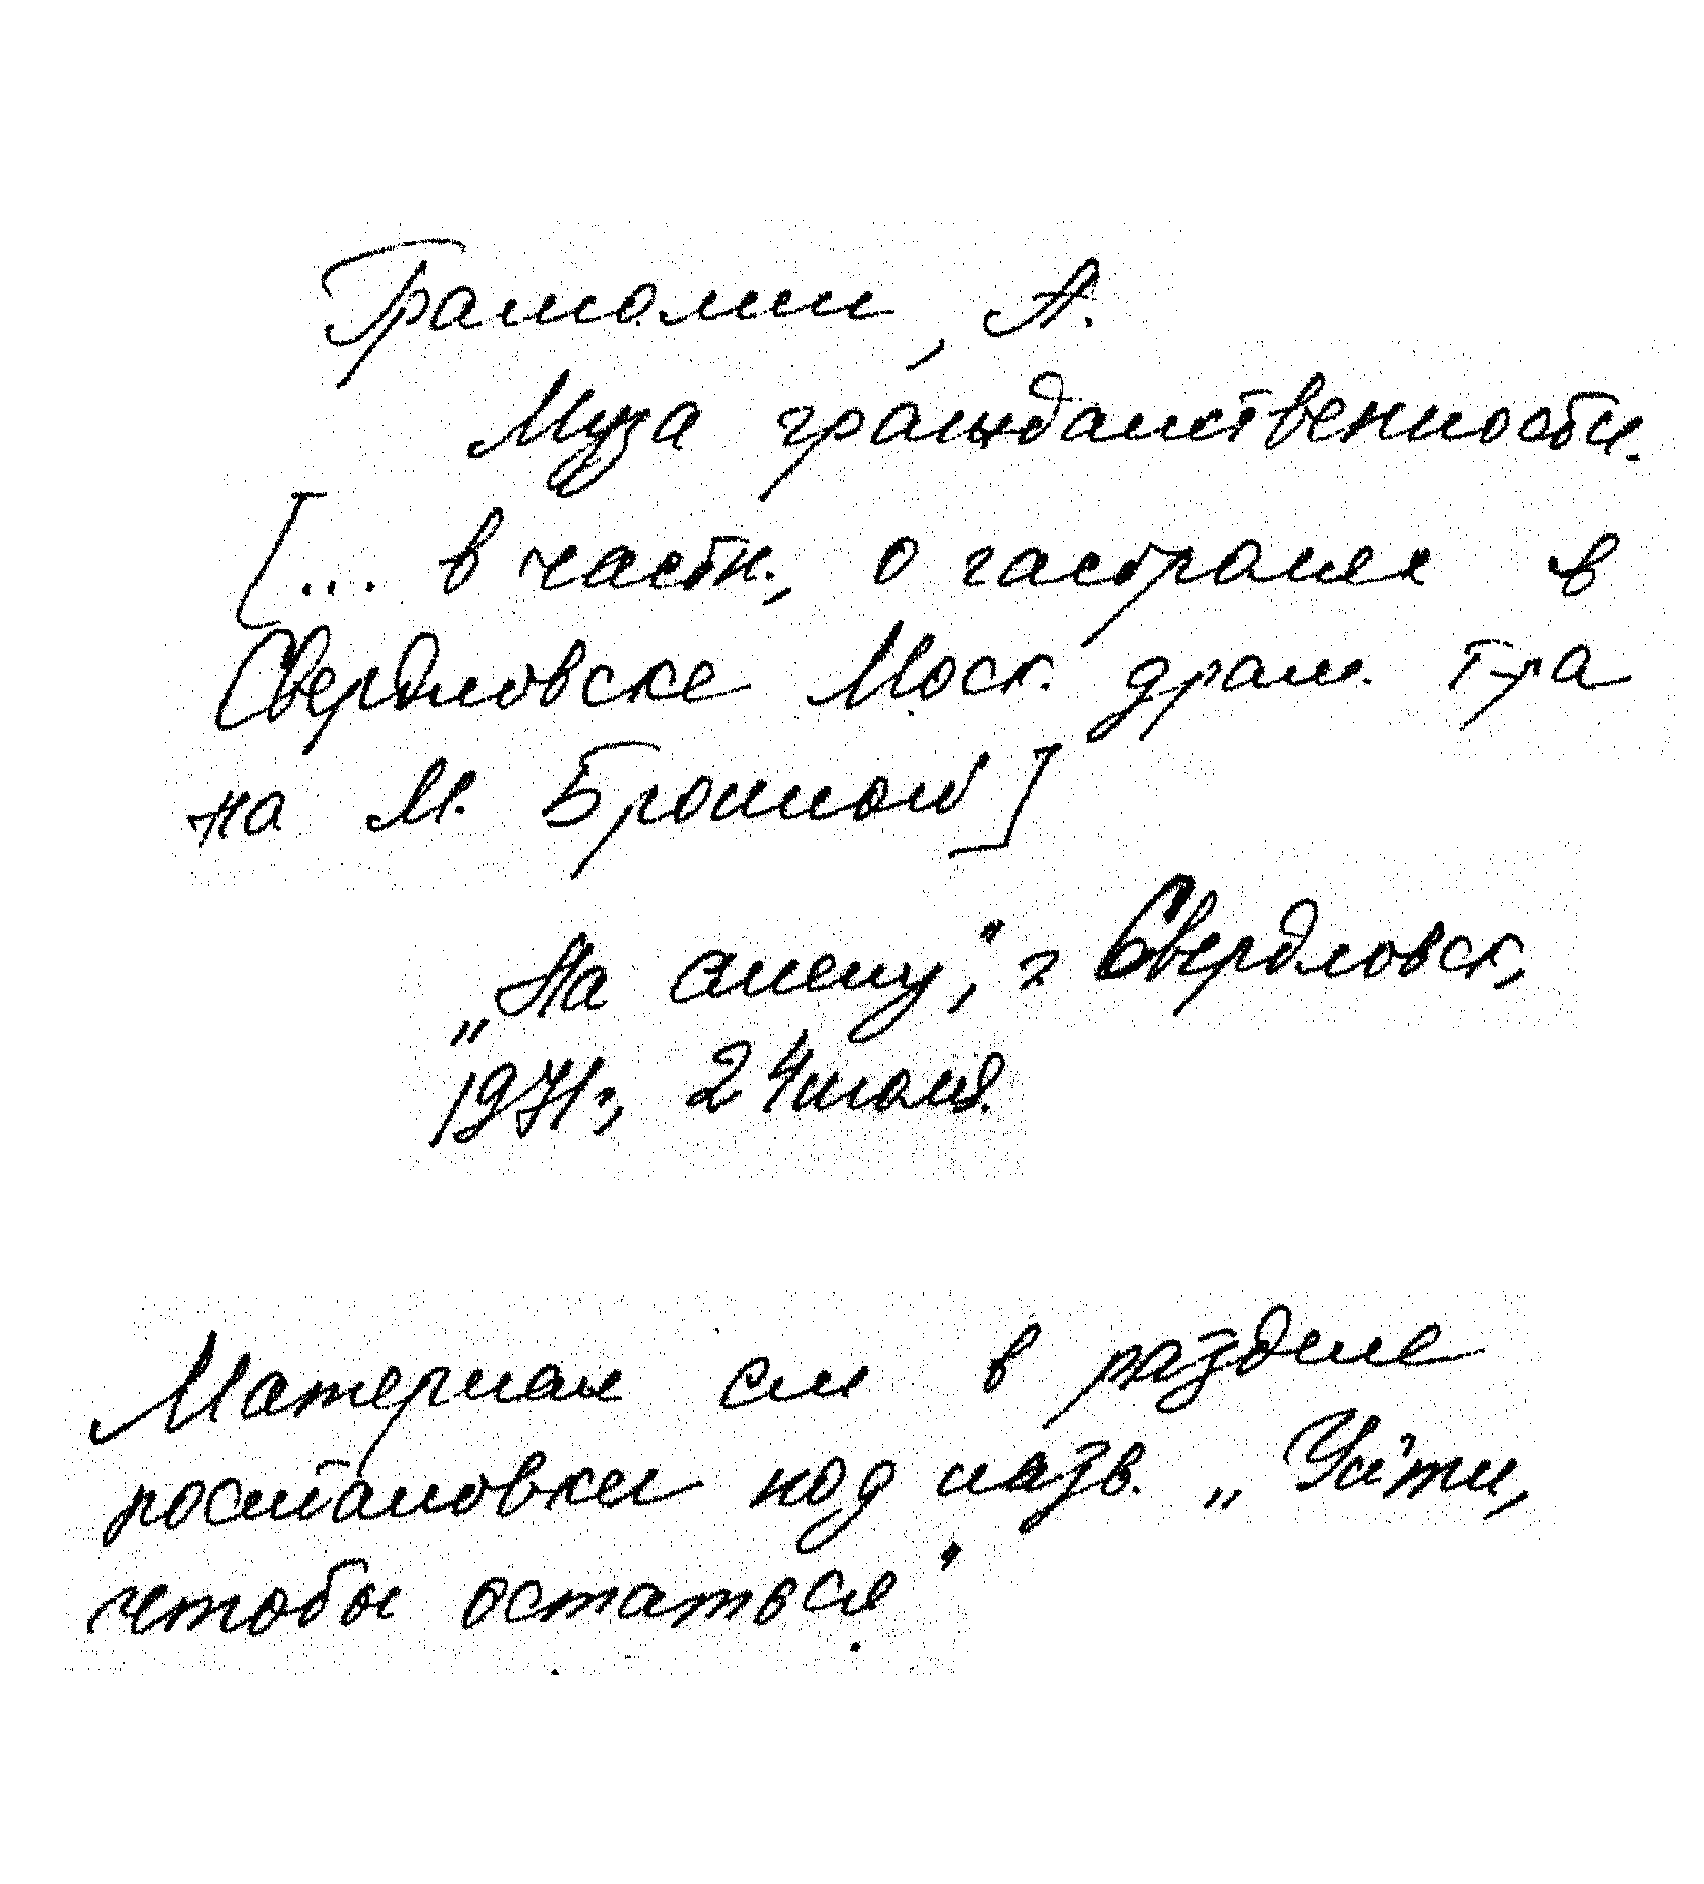 Грамолин, А.
Муза гражданственности.
[... в частн., о гастролях в
Свердловске Моск. драм. т-ра
на М. Бронной]
„На смену“, г Свердловск,
1971г., 24 июля.
Материал см в разделе
постановки под назв. „Уйти,
чтобы остаться“